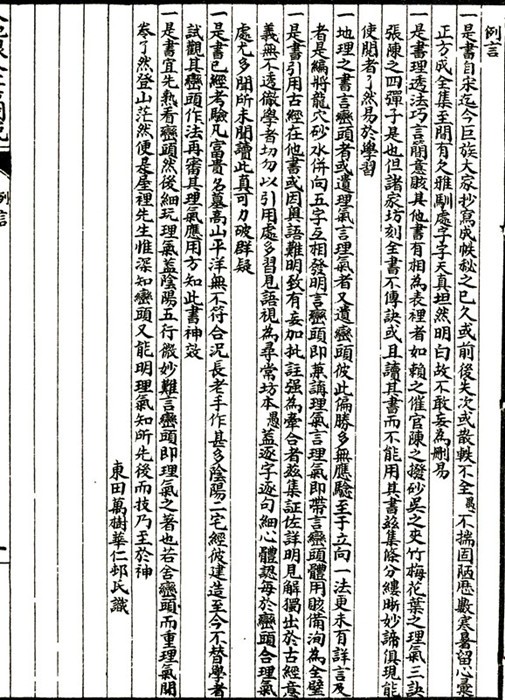 例言
一是書自宋迄今巨族大家抄寫成帙秘之已久或前後失次或散軼不全愚不揣固陋歷數寒暑留心彙
正方成全集至間有欠雅馴處字字天真坦然明白故不敢妄為刪易
一是書理透法巧言簡意賅其他書有相為表裡者如賴之催官陳之撥砂吳之夾竹梅花葉之理氣三訣
張陳之四彈子是也但諸家坊刻全書不傳訣或且讀其書而不能用其書兹集條分縷晰妙諦俱現能
使閱者了然易於學習
一地理之書言巒頭者或遺理氣言理氣者又遺巒頭彼此偏勝多無應驗至于立向一法更未有詳言及
者是編將龍穴砂水併向五字互相發明言巒頭即兼講理氣言理氣即帶言巒頭體用賅備洵為全璧
一是書引用古經在他書或因奧語難明致有妄加批註强為牽合者兹集証佐詳明見解獨出於古經意
義無不透徹學者切勿以引用處多習見語視為尋常坊本愚蓋逐字逐句細心體認每於巒頭合理氣
處尤多聞所未聞讀此真可力破群疑
一是書已經考驗凡富貴名墓高山平洋無不符合況長老手作甚多陰陽二宅經彼建造至今不替學者
試觀其巒頭作法再審其理氣應用方知此書神效
一是書宜先熟看巒頭然後細玩理氣蓋陰陽五行微妙難言巒頭即理氣之著也若舍巒頭而重理氣開
卷了然登山茫然便是屋裡先生惟深知巒頭又能明理氣知所先後而技乃至於神
東田萬樹華仁邨氏識
例言